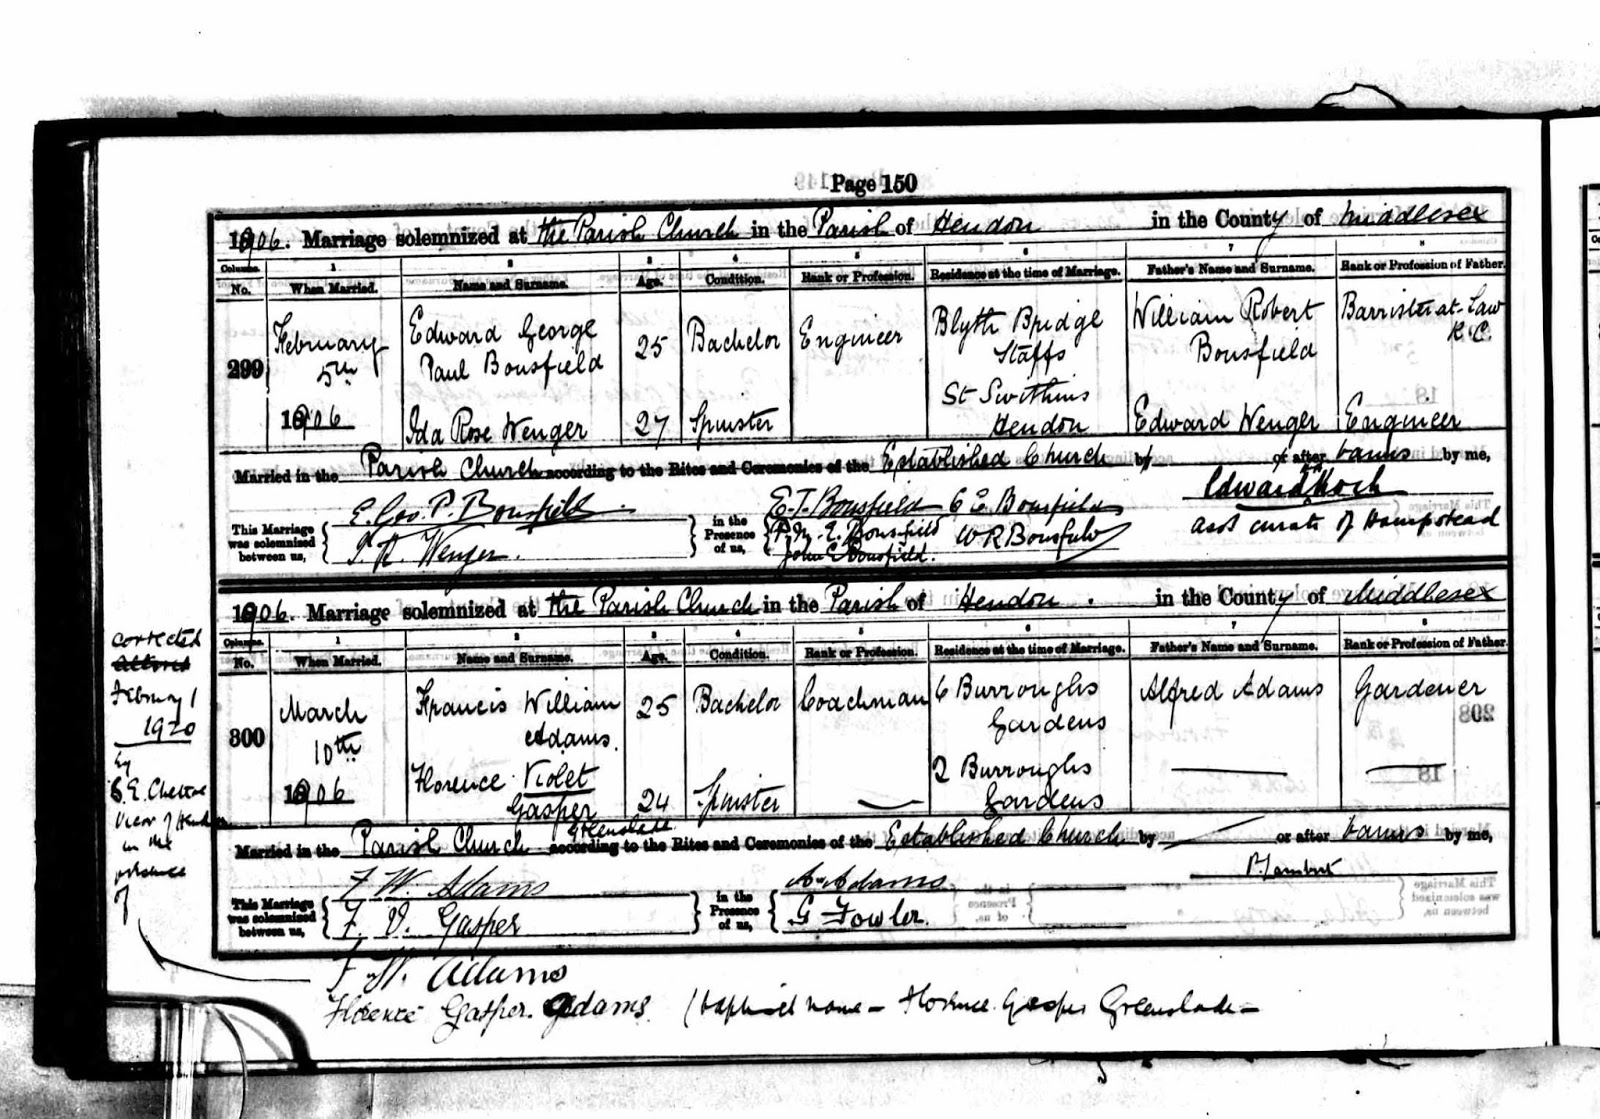 Page 150
1906. Marriage solemnized at the Parish Church in the Parish of Hendon in the County of Middlesex
Columns. 1 2 3 4 5 6 7 8
No. When Married. Name and Surname. Age. Condition. Rank or Profession. Residence at the time of Marriage. Father's Name and Surname. Rank or Profession of Father.
299 February 5th 1906
Edward George Paul Bousfield 25 Bachelor Engineer Blyth Bridge Staffs William Robert Bousfield Barrister-at-Law K.C.
Ida Rose Wenger 27 Spinster St Swithins Hendon Edward Wenger Engineer
Married in the Parish Church according to the Rites and Ceremonies of the Established Church by or after banns by me,
Edward Koch
asst curate of Hampstead
This Marriage was solemnized between us,
E. Geo. P. Bousfield
I. R. Wenger.
in the Presence of us,
E. T. Bousfield
E. Bousfield
John E Bousfield.
W R Bousfield
1906. Marriage solemnized at the Parish Church in the Parish of Hendon. in the County of Middlesex
Columns. 1 2 3 4 5 6 7 8
No. When Married. Name and Surname. Age. Condition. Rank or Profession. Residence at the time of Marriage. Father's Name and Surname. Rank or Profession of Father.
300 March 10th 1906
Francis William Adams. 25 Bachelor Coachman 6 Burroughs Gardens Alfred Adams Gardener
Florence Violet Gasper 24 Spinster — 2 Burroughs Gardens — —
Greenslade
Married in the Parish Church according to the Rites and Ceremonies of the Established Church by — or after banns by me,
Lambert
This Marriage was solemnized between us,
F W Adams
F. V. Gasper
in the Presence of us,
A. Adams
G Fowler.
corrected
altered
February 1
1920
by
Vicar of Hendon
in the
presence
of
F. W. Adams
Florence Gasper. Adams (baptised name – Florence Gasper Greenslade –